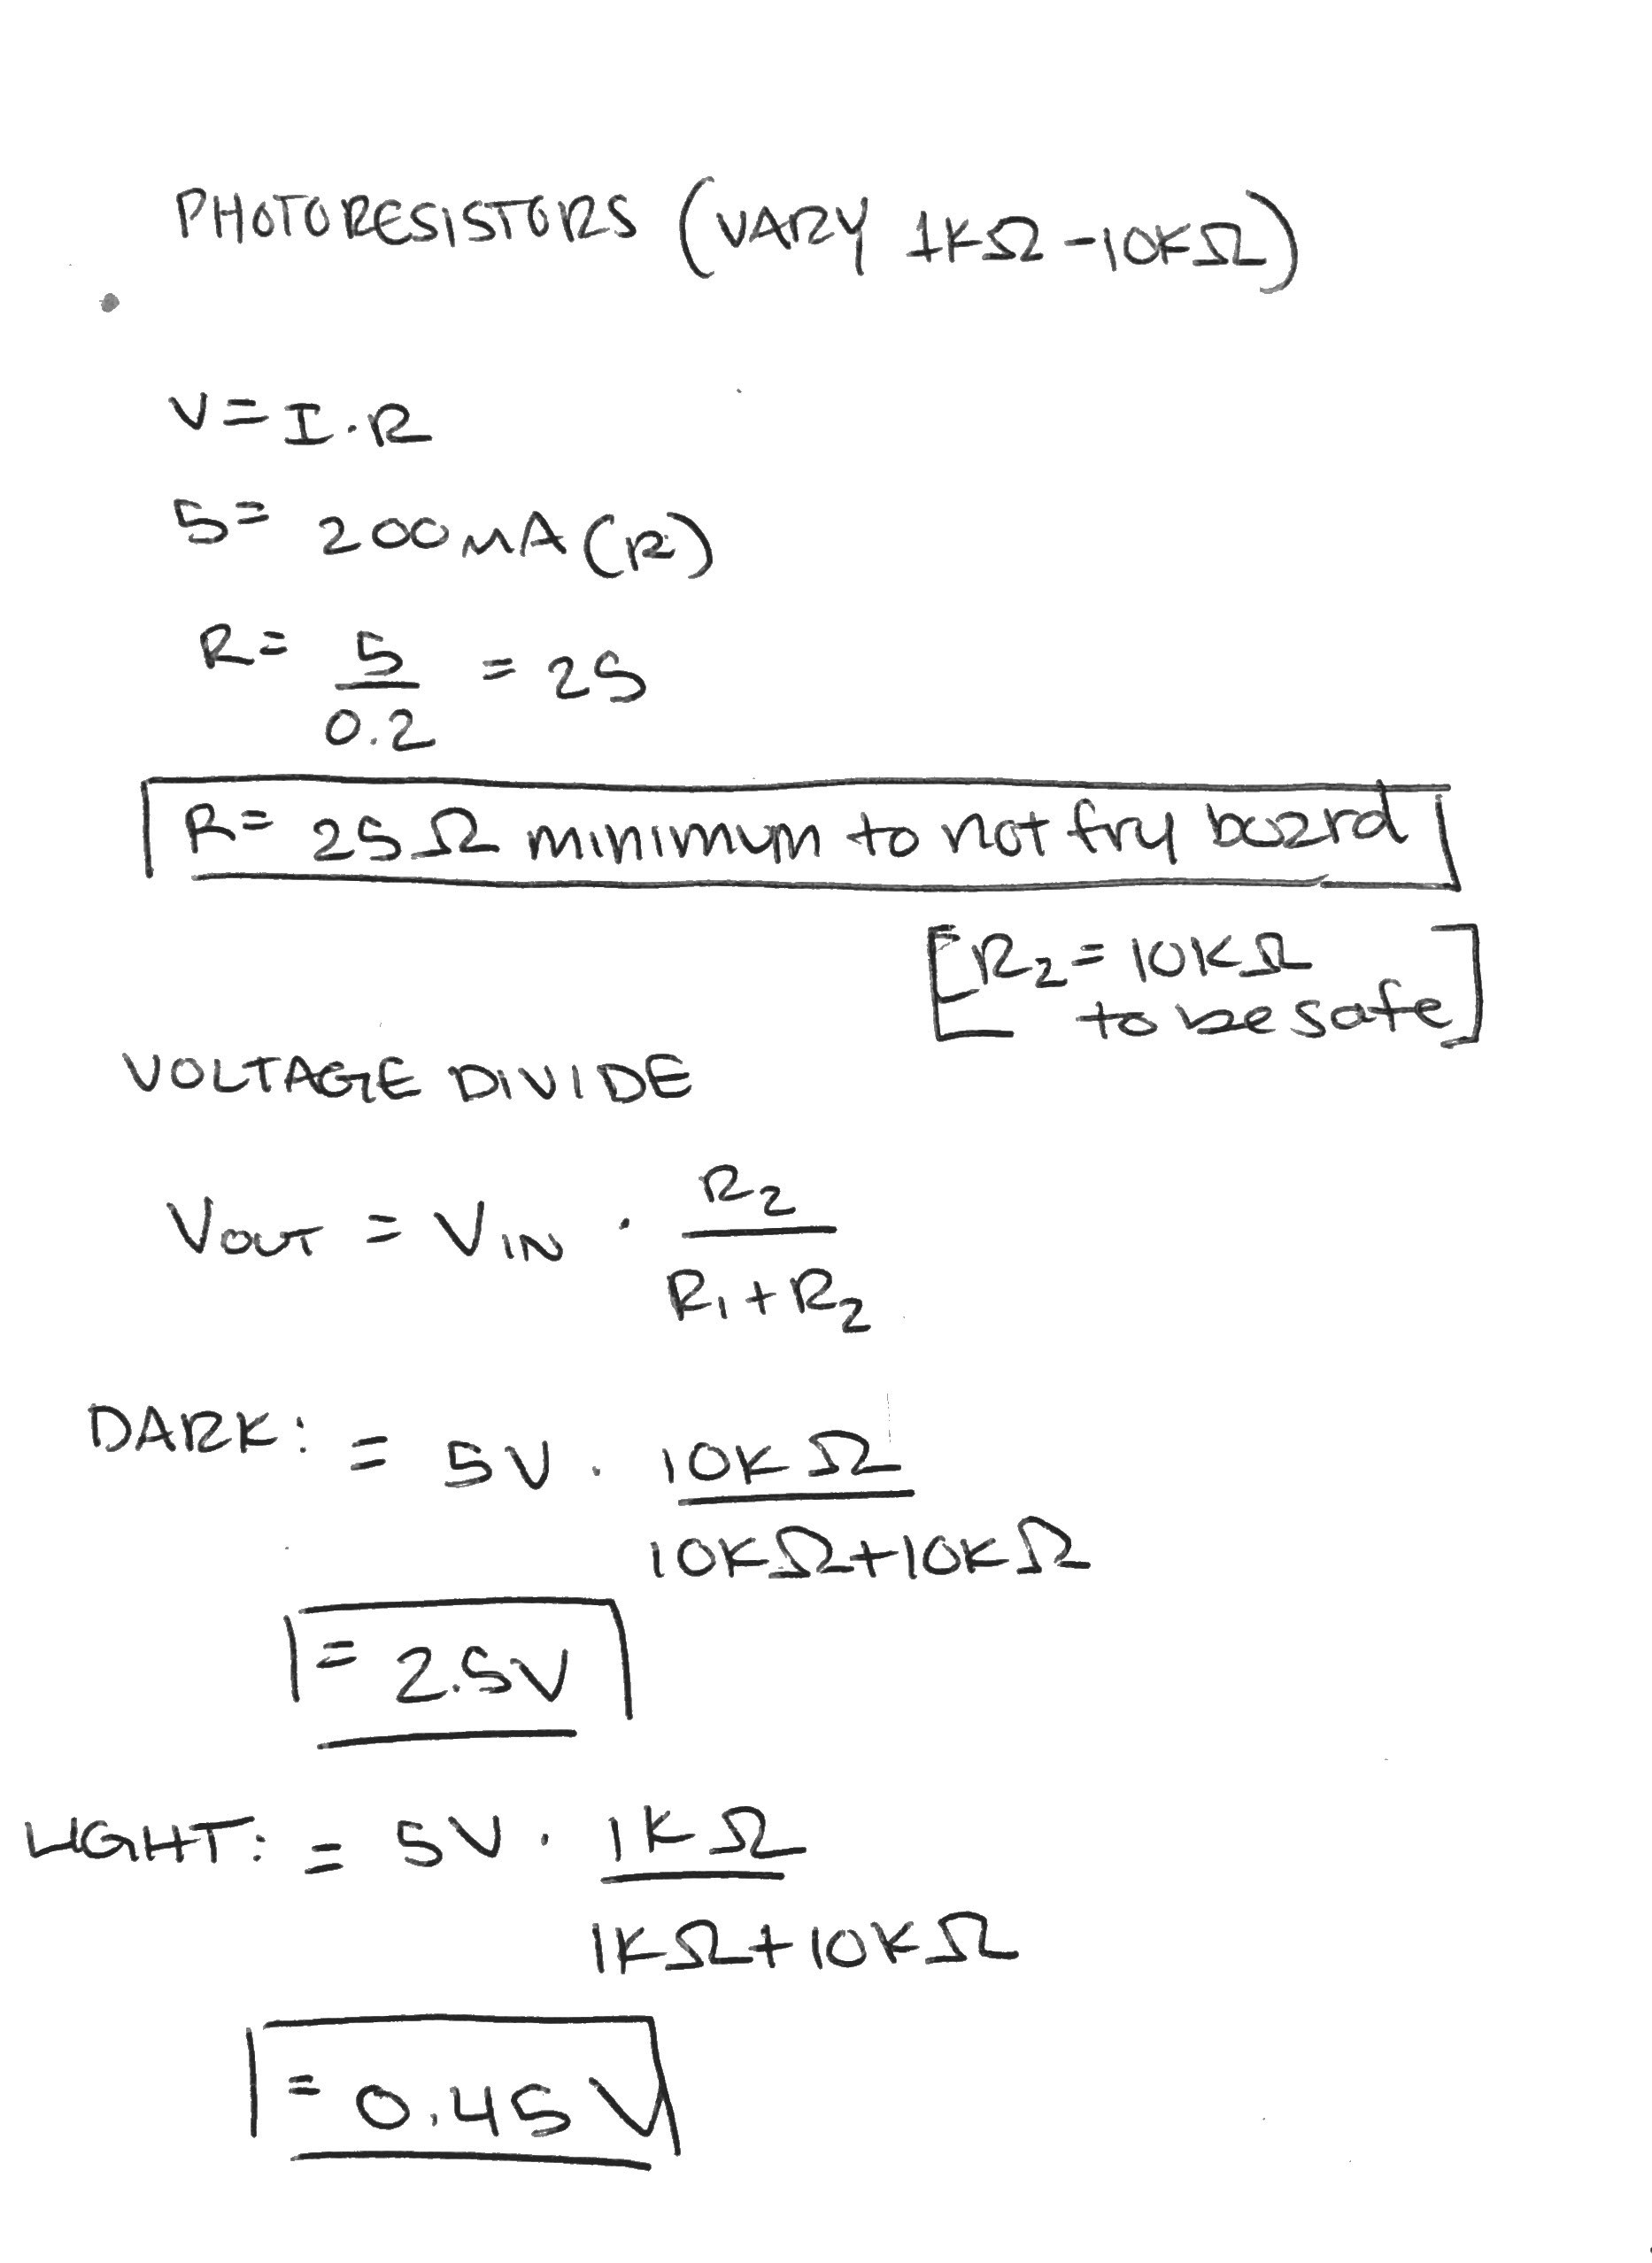 PHOTORESISTORS (VARY 1KΩ-10KΩ)
V=I·R
5= 200mA(R)
R= 5/0.2 = 25
R= 25Ω minimum to not fry board
[R₂=10KΩ
to be safe]
VOLTAGE DIVIDE
VOUT = VIN · R₂/R₁+R₂
DARK: = 5V · 10KΩ/10KΩ+10KΩ
= 2.5V
LIGHT: = 5V · 1KΩ/1KΩ+10KΩ
= 0.45V